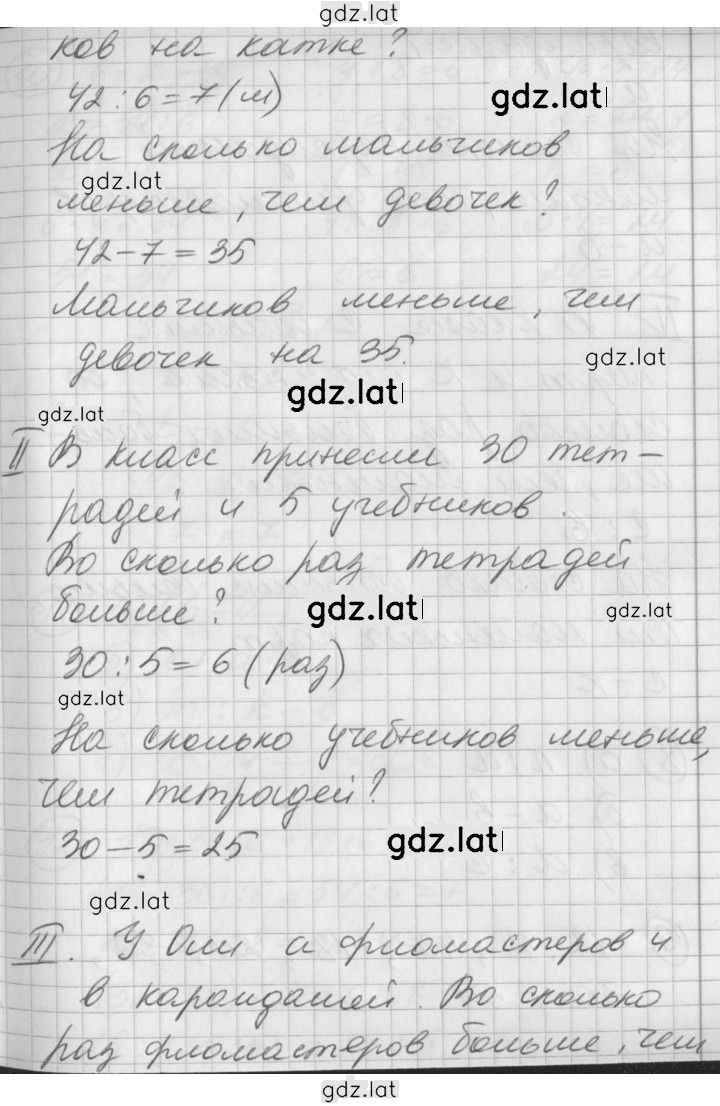 gdz.lat
ков на катке?
42 : 6 = 7 (м)
gdz.lat
На сколько мальчиков
gdz.lat
меньше, чем девочек?
42 – 7 = 35
Мальчиков меньше, чем
девочек на 35.
gdz.lat
gdz.lat
gdz.lat
II В класс принесли 30 тет-
радей и 5 учебников.
Во сколько раз тетрадей
больше?
gdz.lat
gdz.lat
30 : 5 = 6 (раз)
gdz.lat
На сколько учебников меньше,
чем тетрадей?
30 – 5 = 25
gdz.lat
gdz.lat
III. У Оли а фломастеров и
в карандашей. Во сколько
раз фломастеров больше, чем
gdz.lat